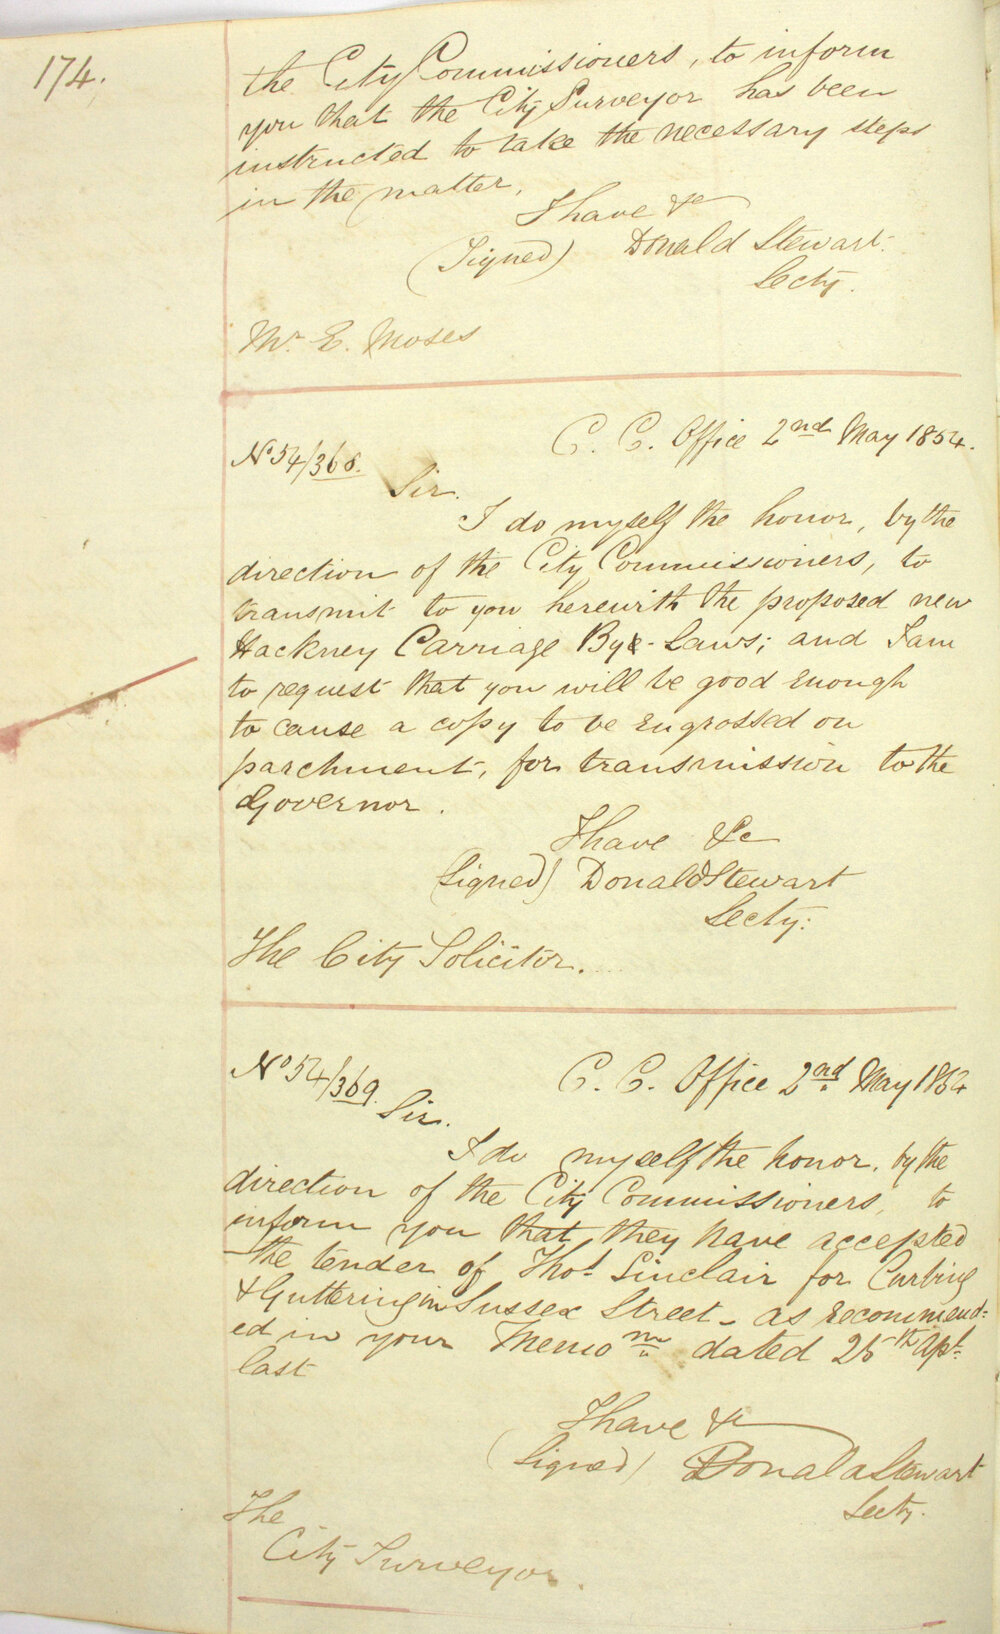 174.
the City Commissioners, to inform
you that the City Surveyor has been
instructed to take the necessary steps
in the matter.
I have &c
(Signed) Donald Stewart.
Secty.
Mr. E. Moses
C. C. Office 2nd May 1854.
No 54/368.
Sir.
I do myself the honor, by the
direction of the City Commissioners, to
transmit to you herewith the proposed new
Hackney Carriage Bye-Laws; and I am
to request that you will be good enough
to cause a copy to be engrossed on
parchment, for transmission to the
Governor.
I have &c
(Signed) Donald Stewart
Secty:
The City Solicitor.
No 54/369.
C. C. Office 2nd May 1854
Sir.
I do myself the honor, by the
direction of the City Commissioners, to
inform you that they have accepted
the tender of Thos. Sinclair for Curbing
& Guttering in Sussex Street - as recommend=
ed in your Memonm dated 25th Apl.
last
I have &c
(Signed) Donald Stewart
Secty.
The
City Surveyor.